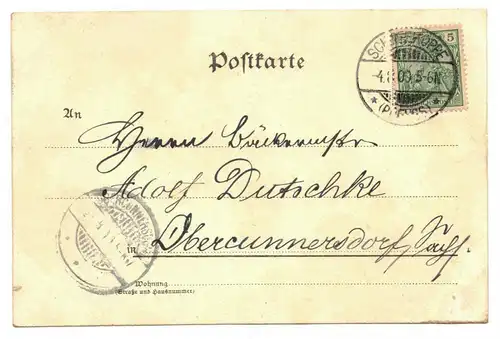 Postkarte
5
SCHNEEKOPPE
4.8.00. 5-6N
An
Herrn Bäckermstr
Adolf Dutschke
in Obercunnersdorf, Sachs.
Wohnung
(Straße und Hausnummer)